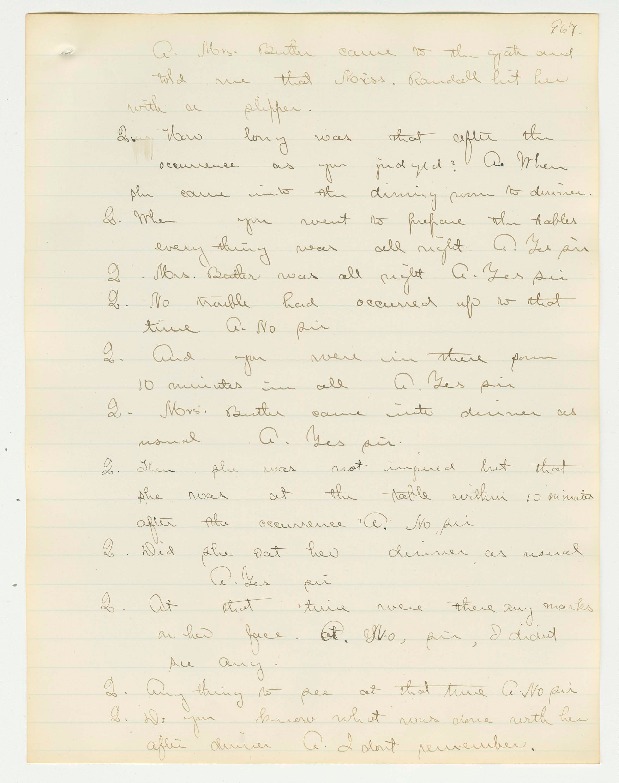 867.
A. Mrs. Butler came to the gate and
told me that Miss. Randall hit her
with a slipper.
Q. How long was that after the
occurrence as you judged? A. When
she came into the dining room to dinner.
Q. When you went to prepare the tables
every thing was all right A. Yes sir
Q. Mrs. Butler was all right A. Yes sir
Q. No trouble had occurred up to that
time A. No sir
Q. And you were in there from
10 minutes in all A. Yes sir
Q. Mrs. Butler came into dinner as
usual A. Yes sir.
Q. Then she was not injured but that
she was at the table within 10 minutes
after the occurrence A. No sir
Q. Did she eat her dinner as usual
A. Yes sir
Q. At that time were there any marks
on her face. A. No, sir, I didnt
see any.
Q. Any thing to see at that time A. No sir
Q. Do you know what was done with her
after dinner A. I dont remember.